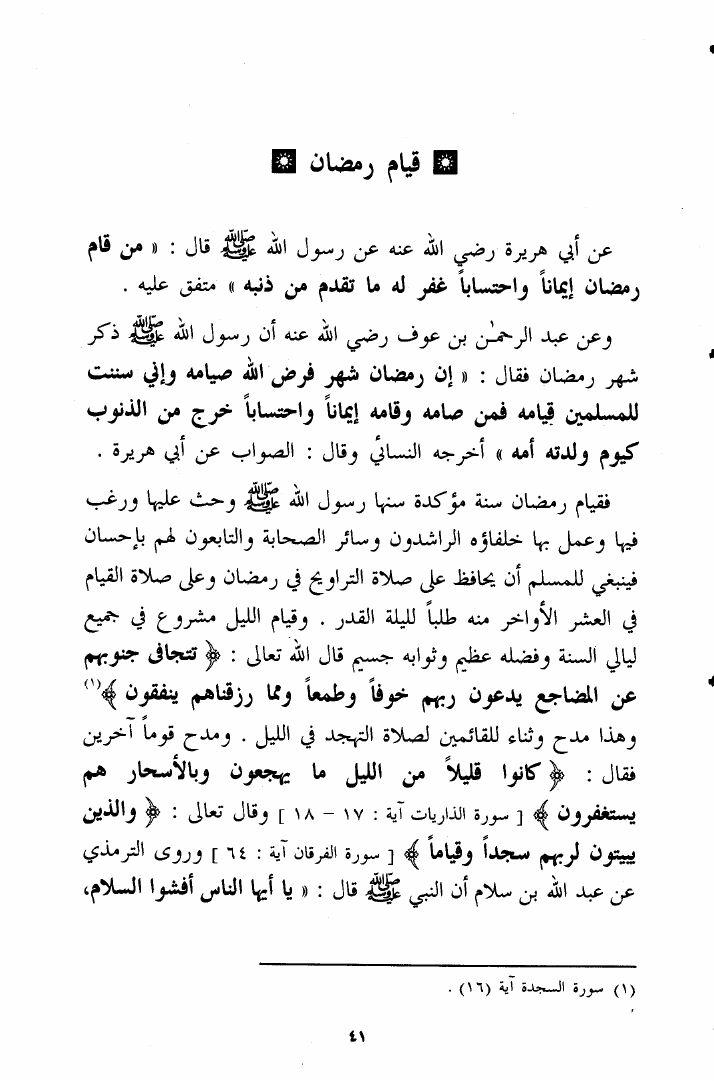 قيام رمضان
عن أبي هريرة رضي الله عنه عن رسول الله ﷺ قال : « من قام
رمضان إيماناً واحتساباً غفر له ما تقدم من ذنبه » متفق عليه .
وعن عبد الرحمٰن بن عوف رضي الله عنه أن رسول الله ﷺ ذكر
شهر رمضان فقال : « إن رمضان شهر فرض الله صيامه وإني سننت
للمسلمين قيامه فمن صامه وقامه إيماناً واحتساباً خرج من الذنوب
كيوم ولدته أمه » أخرجه النسائي وقال : الصواب عن أبي هريرة .
فقيام رمضان سنة مؤكدة سنها رسول الله ﷺ وحث عليها ورغب
فيها وعمل بها خلفاؤه الراشدون وسائر الصحابة والتابعون لهم بإحسان
فينبغي للمسلم أن يحافظ على صلاة التراويح في رمضان وعلى صلاة القيام
في العشر الأواخر منه طلباً لليلة القدر . وقيام الليل مشروع في جميع
ليالي السنة وفضله عظيم وثوابه جسيم قال الله تعالى : ﴿ تتجافى جنوبهم
عن المضاجع يدعون ربهم خوفاً وطمعاً ومما رزقناهم ينفقون ﴾(١)
وهذا مدح وثناء للقائمين لصلاة التهجد في الليل . ومدح قوماً آخرين
فقال : ﴿ كانوا قليلاً من الليل ما يهجعون وبالأسحار هم
يستغفرون ﴾ [ سورة الذاريات آية : ١٧ – ١٨ ] وقال تعالى : ﴿ والذين
يبيتون لربهم سجداً وقياماً ﴾ [ سورة الفرقان آية : ٦٤ ] وروى الترمذي
عن عبد الله بن سلام أن النبي ﷺ قال : « يا أيها الناس أفشوا السلام،
(١) سورة السجدة آية (١٦) .
٤١